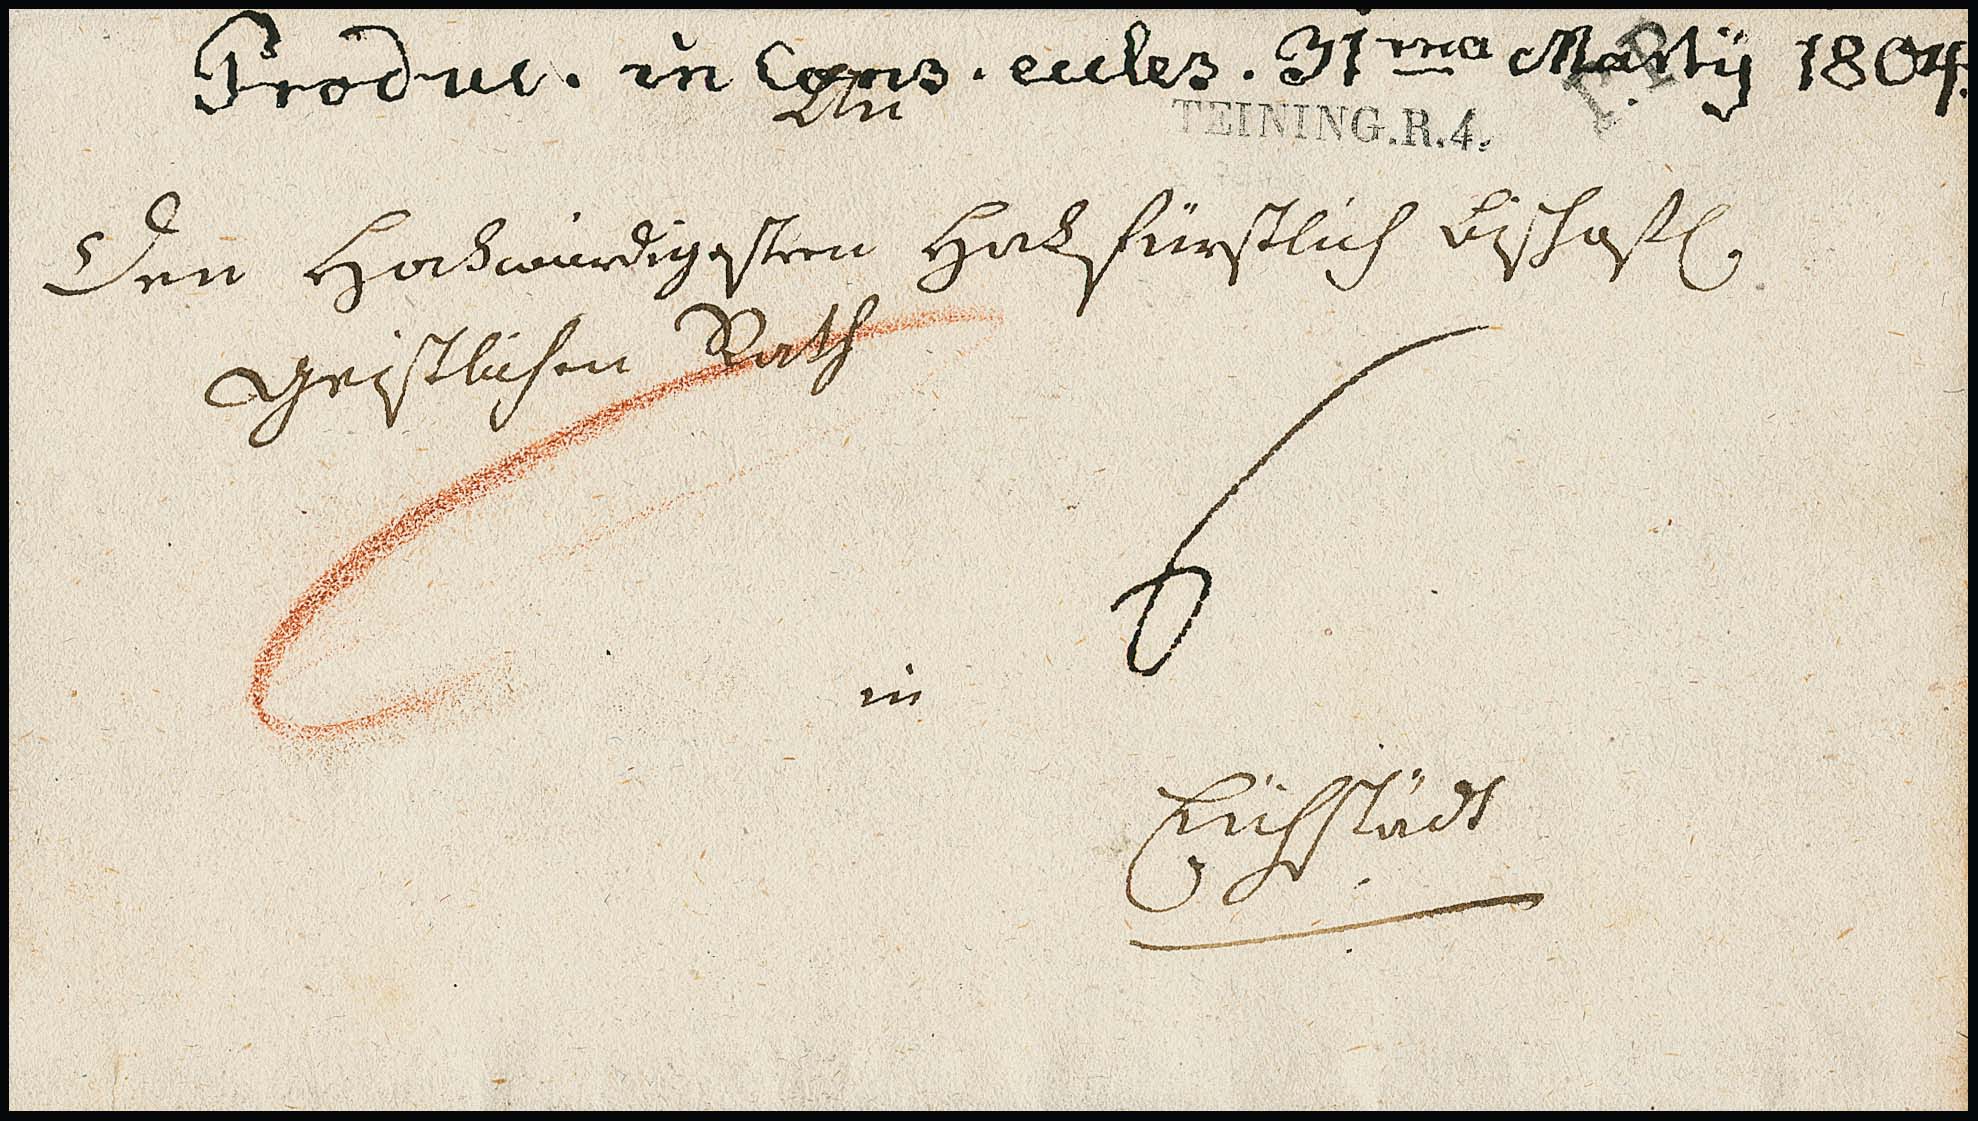 Produc. in Cons. eccles. 31ma Martij 1804.
An
TEINING.R.4.
Den Hochwürdigesten Hochfürstlich Bischöfl.
Geistlichen Rath
in
Eichstädt